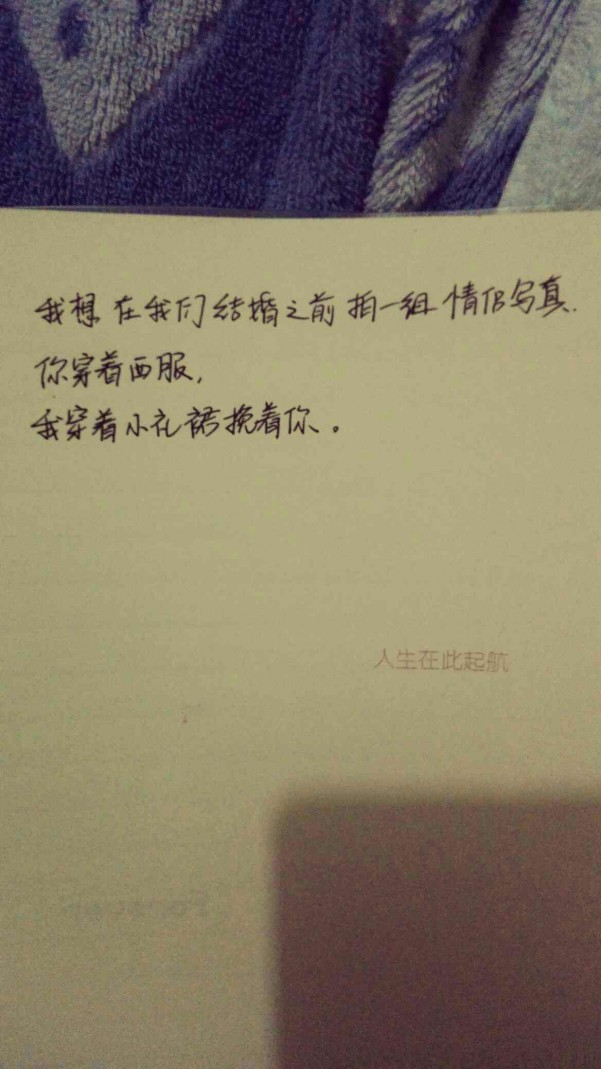 我想在我们结婚之前拍一组情侣写真.
你穿着西服,
我穿着小礼裙挽着你。
人生在此起航